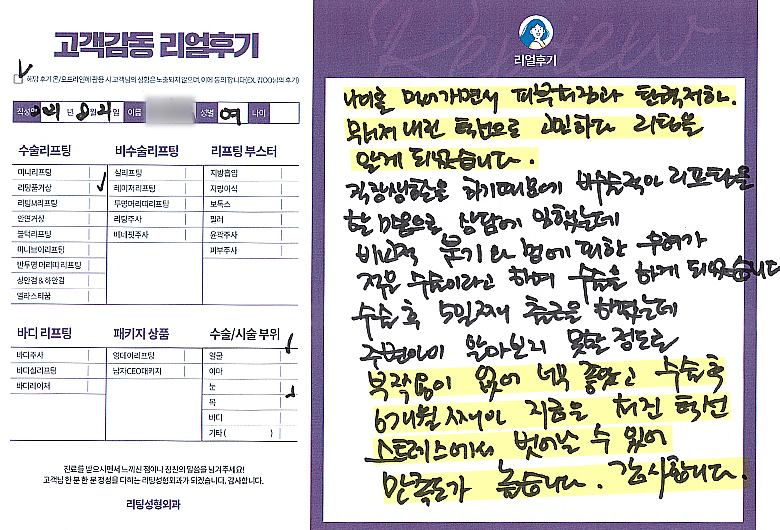 고객감동 리얼후기
해당 후기 온/오프라인에 활용 시 고객님의 성함은 노출되지 않으며, 이에 동의 합니다(EX. 김OO님의 후기)
작성일 2021 년 8 월 21 일 이름 성별 여 나이
수술리프팅
미니리프팅
리팅풀거상
리팅M리프팅
안면거상
블럭리프팅
미니브이리프팅
반투명 머리띠 리프팅
상안검 & 하안검
엘라스티꿈
비수술리프팅
실리프팅
레이저리프팅
투명머리띠리프팅
리팅주사
베네핏주사
리프팅 부스터
지방흡입
지방이식
보톡스
필러
윤곽주사
피부주사
바디 리프팅
바디주사
바디실리프팅
바디레이저
패키지 상품
영데이리프팅
남자CEO패키지
수술/시술 부위
얼굴
이마
눈
목
바디
기타 ( )
진료를 받으시면서 느끼신 점이나 칭찬의 말씀을 남겨주세요!
고객님 한 분 한 분 정성을 다하는 리팅성형외과가 되겠습니다. 감사합니다.
리팅성형외과
Review
리얼후기
나이를 먹어가면서 피부처짐과 탄력저하.
무너져 내린 턱선으로 고민하다 리팅을
알게 되었습니다.
직장생활을 하기때문에 비수술적인 리프팅을
할 마음으로 상담에 임했는데
비교적 붓기와 멍에 대한 수혜가
적은 수술이라고 하여 수술을 하게 되었습니다
수술 후 5일째 출근을 하였는데
주변인이 알아보지 못할 정도로
부작용이 없어 너무 좋았고 수술후
6개월 째인 지금은 처진 턱선
스트레스에서 벗어날 수 있어
만족도가 높습니다. 감사합니다.